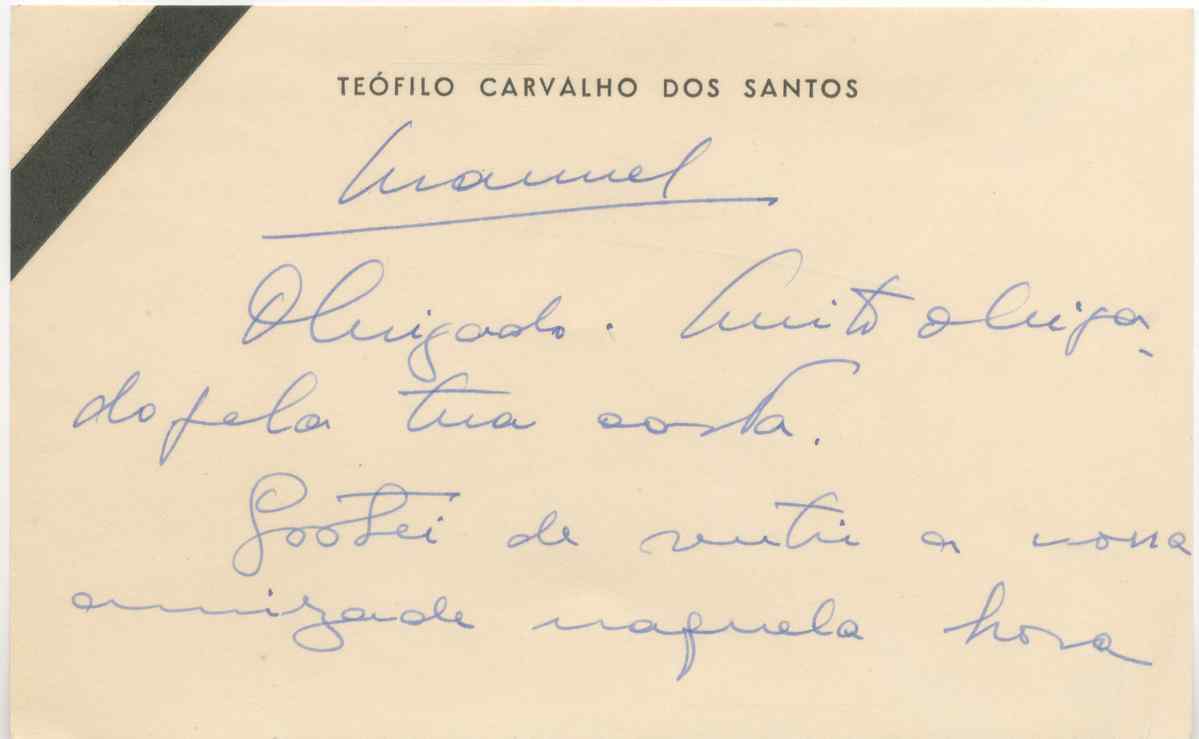 TEÓFILO CARVALHO DOS SANTOS
Manuel
Obrigado. Muito obriga-
do pela tua carta.
Gostei de sentir a vossa
amizade naquela hora